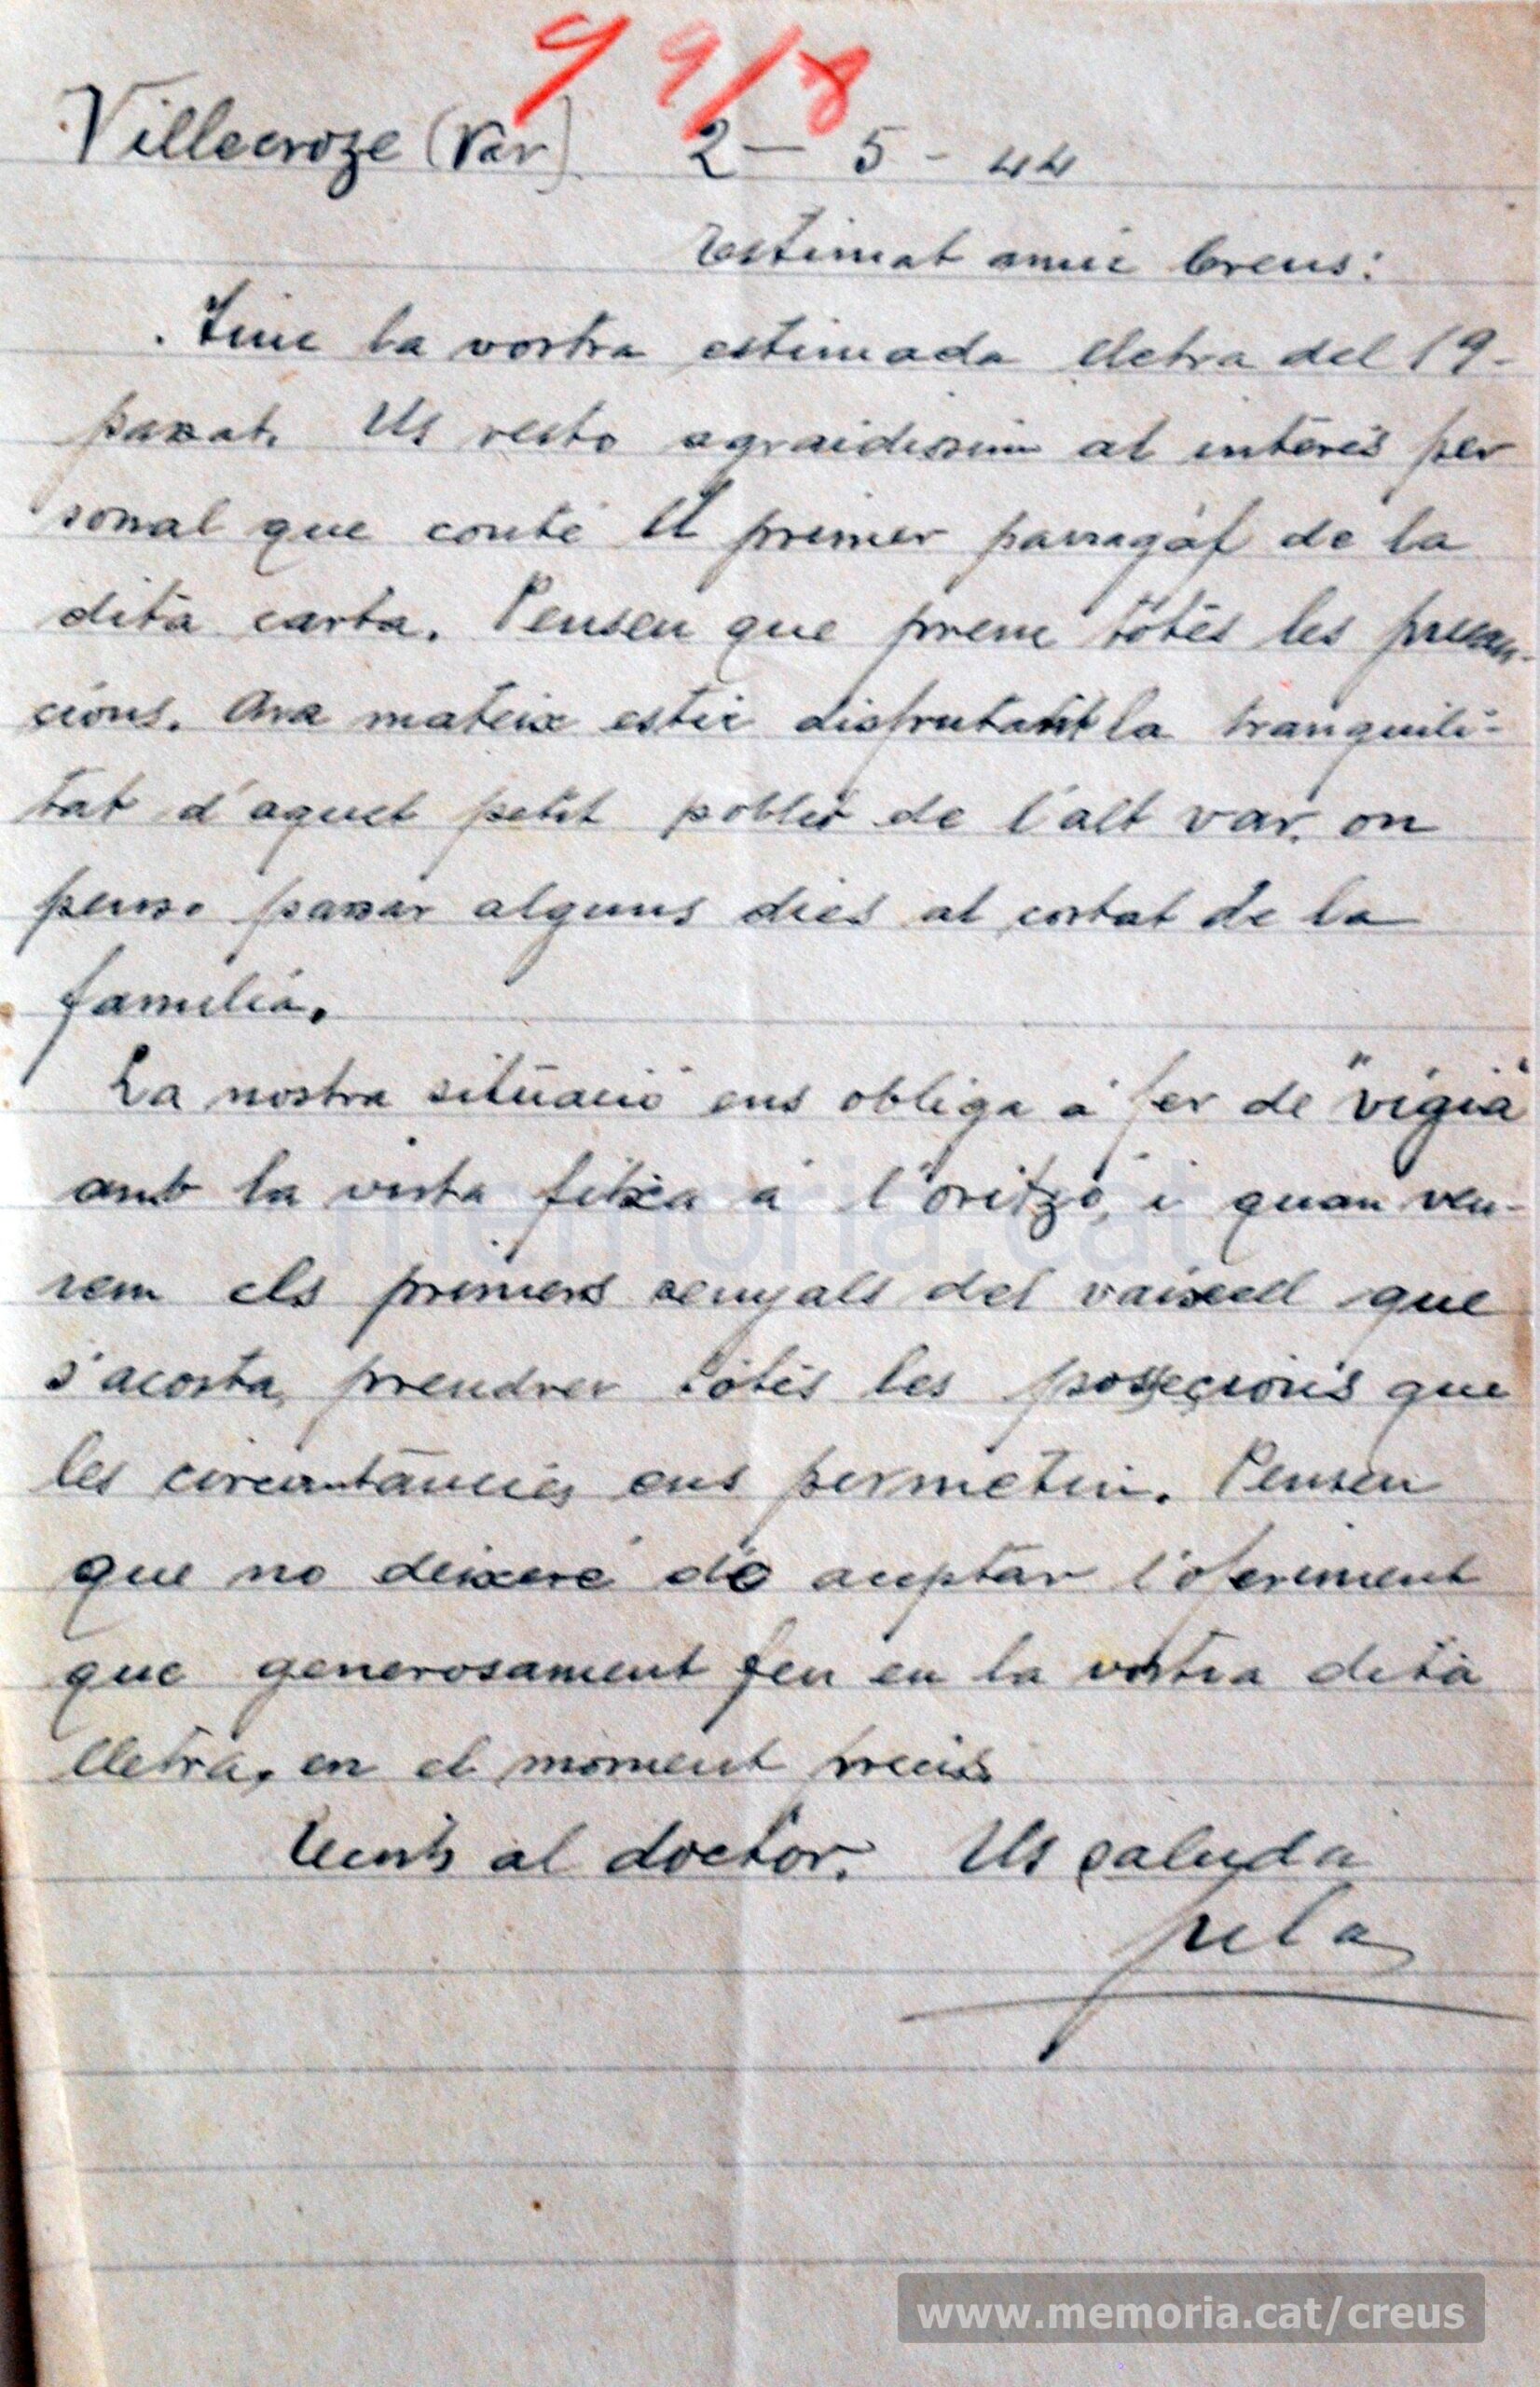 9 9/8
Villecroze (Var) 2 - 5 - 44
Estimat amic Creus:
Tinc la vostra estimada lletra del 19-
passat. Us resto agraidissim al interès per
sonal que conté el primer parragàf de la
dita carta. Penseu que prenc totes les precau-
cions. Ara mateix estic disfrutant la tranquili-
tat d'aquet petit poblet de l'alt var, on
penso passar alguns dies al costat de la
familia.
La nostra situació ens obliga a fer de "vigia"
amb la vista fitxa a l'oritzó, i quan veu-
rem els primers senyals del vaixell que
s'acosta, prendrer totes les possecions que
les circuntàncies ens permetin. Penseu
que no deixeré de aceptar l'oferiment
que generosament feu en la vostra dita
lletra, en el moment precis.
al doctor. Us saluda
memoria.cat
www.memoria.cat/creus